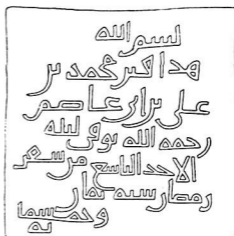 بسم الله
هدا قبر محمد بن
على بن ابى عاصم
رحمه الله توفى ليله
الاحد التاسع من شهر
رمضان سنه ثمان
وخمسما
ئه